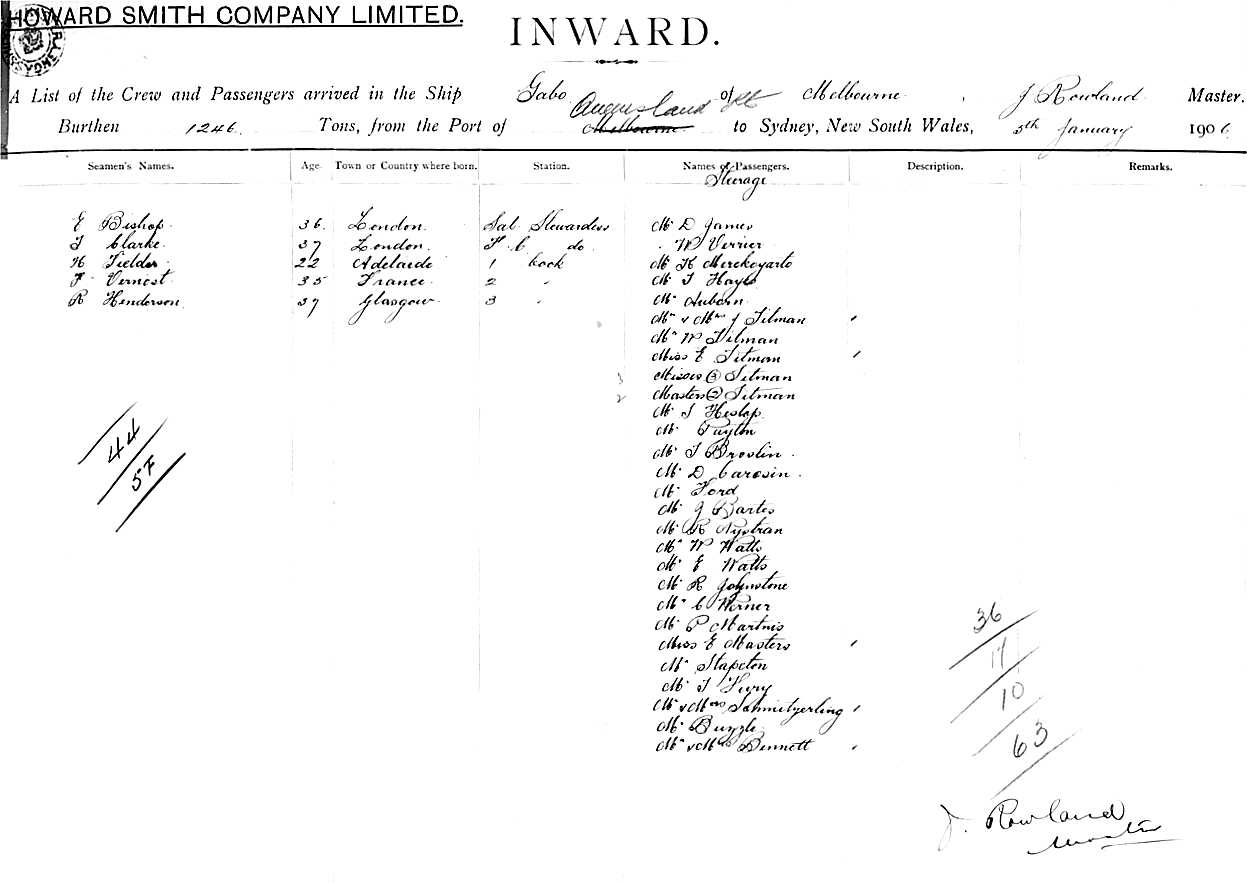 HOWARD SMITH COMPANY LIMITED.
INWARD.
A List of the Crew and Passengers arrived in the Ship Gabo of Melbourne, J Rowland Master.
Burthen 1246 Tons, from the Port of Melbourne to Sydney, New South Wales, 5th January 1906
Seamen's Names. Age Town or Country where born. Station. Names of Passengers. Description. Remarks.
Steerage
E Bishop 36 London Sal Stewardess Mr D James
Clarke 37 London F C do. W Verrier
H Fielder 22 Adelaide 1 Cook Mr K
F Vernest 35 France 2 " Mr T Hayes
R Henderson 37 Glasgow 3 " Mr Auborn
Mr & Mrs J Titman
Mr W Titman
Miss E Titman
3 Misses (3) Titman
2 Masters (2) Titman
Mr T Heslop
Mr
Mr T Breslin
Mr D
Mr Ford
Mr J Bartes
Mr R Nystran
Mr W Watts
Mr E Watts
Mr R Johnstone
Mr C Werner
Mr P Martnis
Miss E Masters
Mr Stapeton
Mr T
Mr & Mrs
Mr
Mr & Mrs Bennett
44
5F
36
17
10
63
J. Rowland
Master